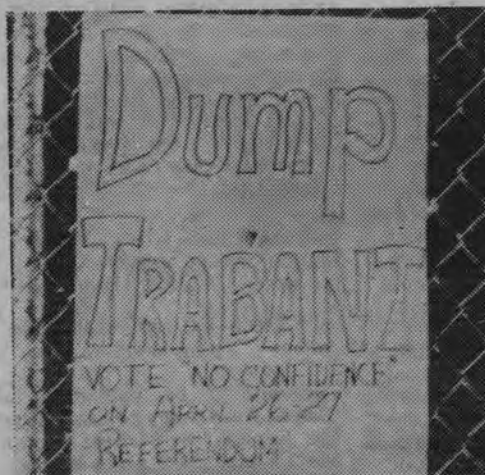 Dump
TRABANT
VOTE "NO CONFIDENCE"
ON APRIL 26-27
REFERENDOM